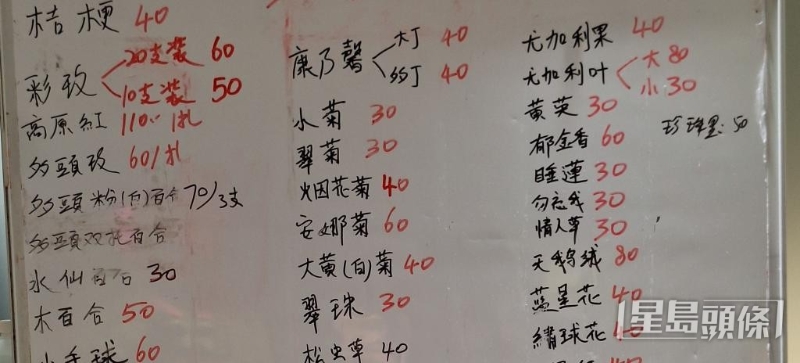 桔梗 40
彩玫 20支装 60
10支装 50
高原紅 110 1扎
多頭玫 60/扎
多頭粉(白)百合 70/3支
多頭双託百合
水仙百合 30
木百合 50
小手球 60
康乃馨 大丁 40
多丁 40
小菊 30
翠菊 30
烟花菊 40
安娜菊 60
大黄(白)菊 40
翠珠 30
松虫草 40
尤加利果 40
尤加利叶 大 80
小 30
黄英 30
郁金香 60
睡蓮 30
勿忘我 30
情人草 30
天鵝絨 80
藍星花 40
繡球花
珍珠墨: 50
星島頭條